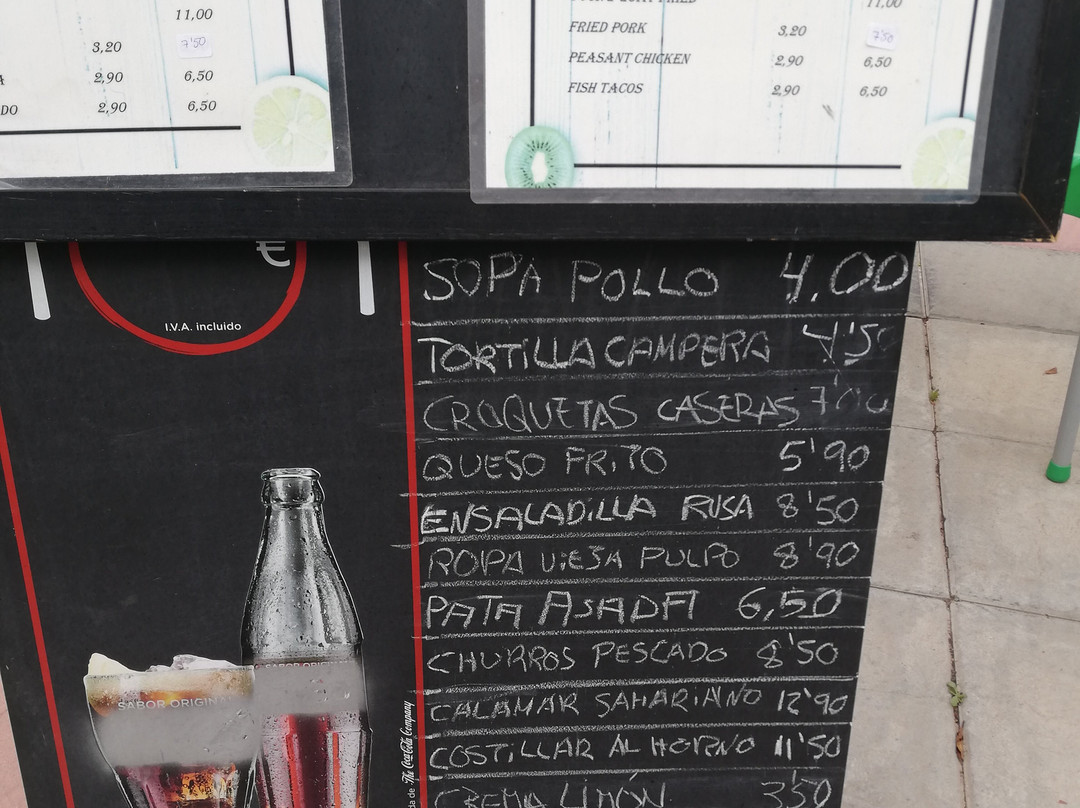 11,00
3,20 7'50
2,90 6,50
DO 2,90 6,50
11,00
FRIED PORK 3,20 7'50
PEASANT CHICKEN 2,90 6,50
FISH TACOS 2,90 6,50
€
I.V.A. incluido
SOPA POLLO 4.00
TORTILLA CAMPERA 4'50
CROQUETAS CASERAS
QUESO FRITO 5'90
ENSALADILLA RUSA 8'50
ROPA VIEJA PULPO 8'90
PATA ASADA 6,50
CHURROS PESCADO 8'50
CALAMAR SAHARIANO 12'90
COSTILLAR AL HORNO 11'50
CREMA LIMÓN 3'50
SABOR ORIGIN
The Coca-Cola Company